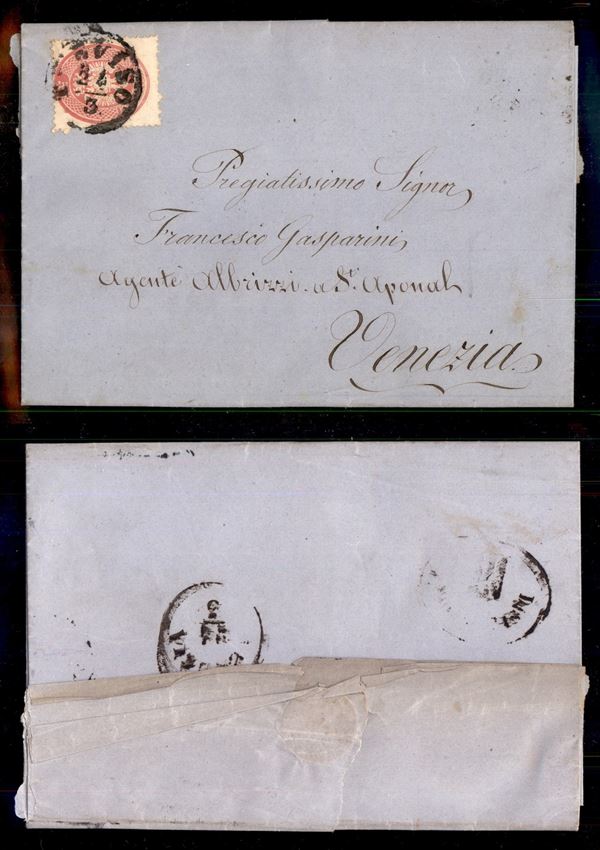 Pregiatissimo Signor
Francesco Gasparini
Agente Albrizzi. a St. Aponal
Venezia.